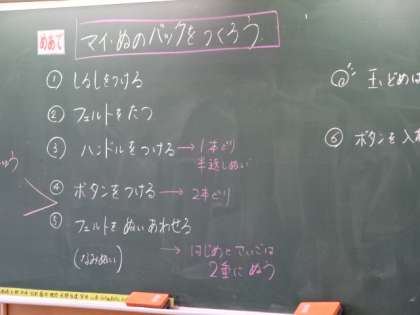 めあて
マイ・ぬのバックをつくろう
① しるしをつける
② フェルトをたつ
③ ハンドルをつける → 1本どり
半返しぬい
④ ボタンをつける → 2本どり
⑤ フェルトをぬいあわせる
(なみぬい) → はじめとさいごは
2重にぬう
玉どめは
⑥ ボタンを入れ